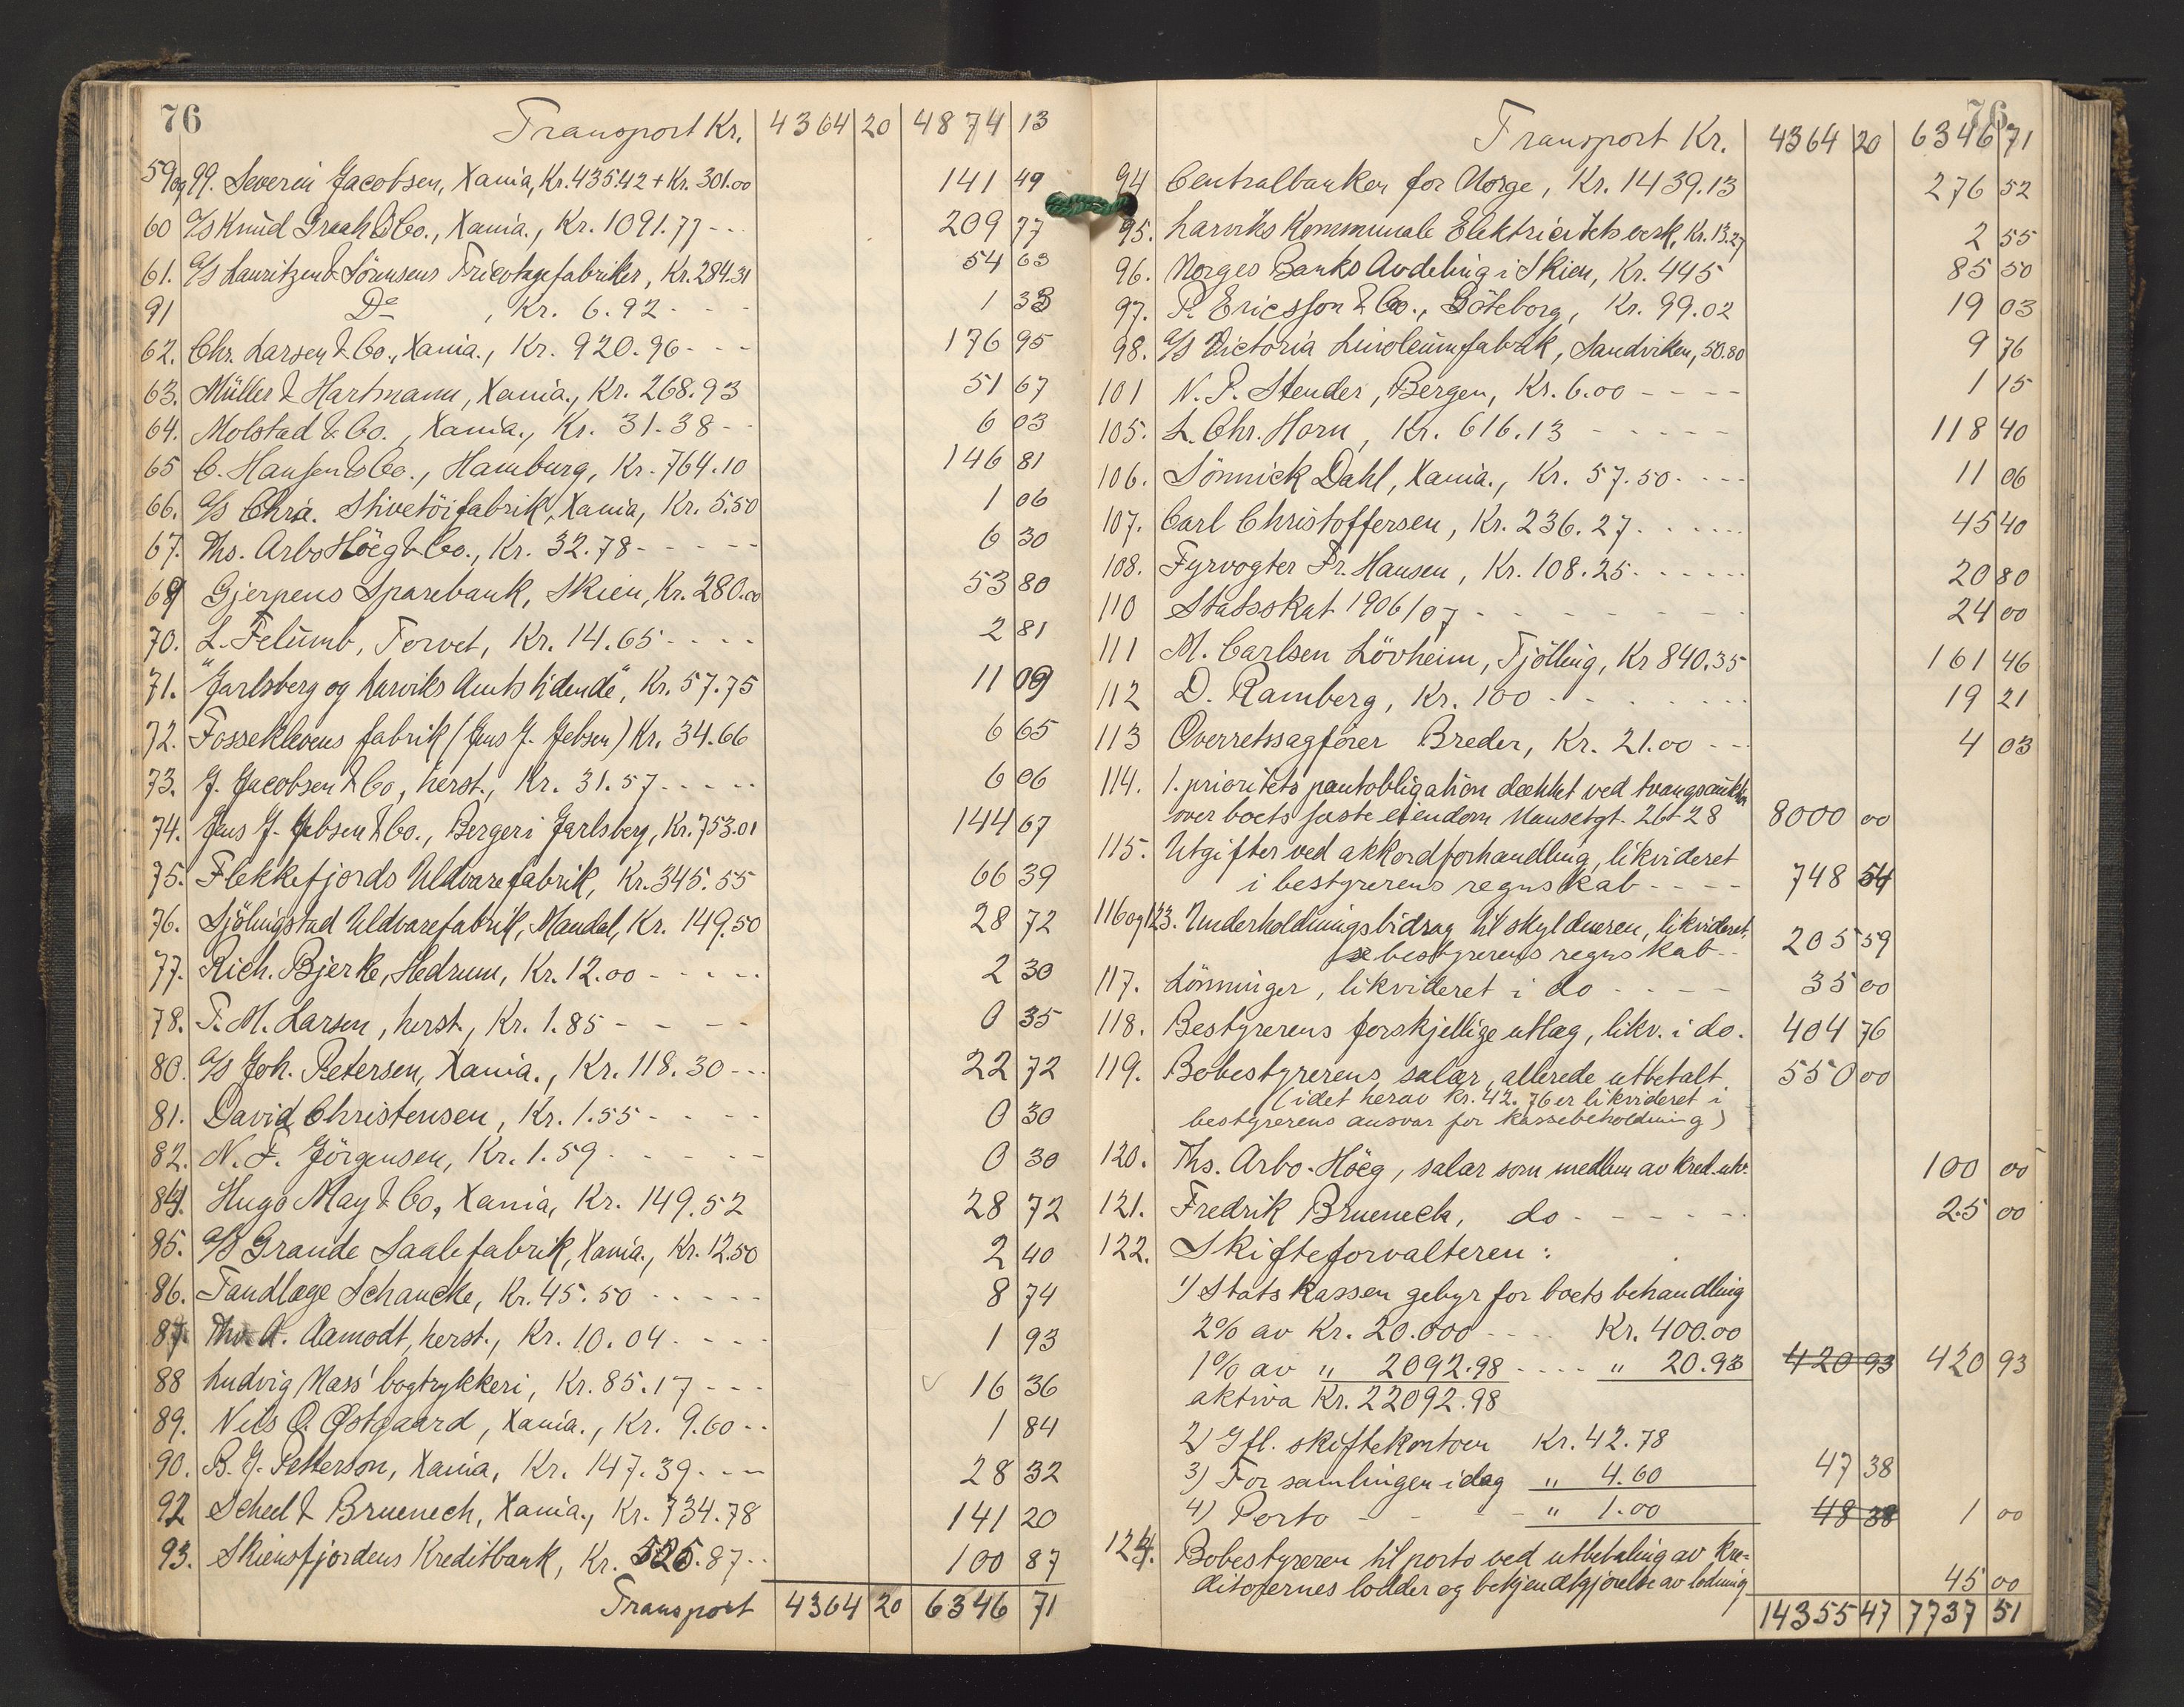 76
Transport Kr. 4364 20 4874 13
59 og 99. Severin Jacobsen, Xania, Kr. 435.42 + Kr. 301.00 141 49
60 A/S Knud Graah & Co., Xania., Kr. 1091.77 - - - 209 77
61. A/S Lauritzen & Sörensens Tricotagefabriker, Kr. 284.31 54 63
91 Do , Kr. 6.92 - - - 1 33
62. Chr. Larsen & Co., Xania., Kr. 920.96 - - - 176 95
63. Müller & Hartmann, Xania., Kr. 268.93 51 67
64. Molstad & Co., Xania., Kr. 31.38 - - 6 03
65 C. Hansen & Co., Hamburg, Kr. 764.10 146 81
66. A/S Chra. Stivetöifabrik, Xania, Kr. 5.50 1 06
67. Ths. Arbo Höeg & Co., Kr. 32.78 - - - - - 6 30
69 Gjerpens Sparebank, Skien, Kr. 280.00 53 80
70. L. Felumb, Torvet, Kr. 14.65 - - - - 2 81
71. "Jarlsberg og Larviks Amtstidende", Kr. 57.75 11 09
72. Fosseklevens fabrik (Jens J. Jebsen) Kr. 34.66 6 65
73. J. Jacobsen & Co, herst., Kr. 31.57 - - - - - 6 06
74. Jens J. Jebsen & Co., Berger i Jarlsberg, Kr. 753.01 144 67
75. Flekkefjords Uldvarefabrik, Kr. 345.55 66 39
76. Sjölingstad Uldvarefabrik, Mandal, Kr. 149.50 28 72
77. Rich. Bjerke, Hedrum, Kr. 12.00 - - - - - 2 30
78. T. M. Larsen, herst., Kr. 1.85 - - - - 0 35
80. A/S Joh. Petersen, Xania., Kr. 118.30 - - - 22 72
81. David Christensen, Kr. 1.55 - - - - 0 30
82. N. F. Jörgensen, Kr. 1.59 - - - - - 0 30
84. Hugo May & Co, Xania, Kr. 149.52 28 72
85. A/S Grande Saalefabrik, Xania., Kr. 12.50 2 40
86. Tandlæge Schancke, Kr. 45.50 - - - - - 8 74
87. Thv. A. Aamodt, herst., Kr. 10.04 - - - - 1 93
88 Ludvig Næss' bogtrykkeri, Kr. 85.17 - - - 16 36
89. Nils O. Østgaard, Xania., Kr. 9.60 - - 1 84
90. B. J. Petterson, Xania, Kr. 147.39 - - - 28 32
92 Scheel & Bruenech, Xania., Kr. 734.78 141 20
93. Skiensfjordens Kreditbank, Kr. 525.87 - - 100 87
Transport 4364 20 6346 71
76
Transport Kr. 4364 20 6346 71
94 Centralbanken for Norge, Kr. 1439.13 276 52
95. Larviks Kommunale Elektricitetsverk, Kr. 13.27 2 55
96. Norges Banks Avdeling i Skien, Kr. 445 85 50
97. P. Ericsson & Co., Göteborg, Kr. 99.02 19 03
98. A/S Victoria Linoleumfabrik, Sandviken, 50.80 9 76
101 N. P. Stender, Bergen, Kr. 6.00 - - - - 1 15
105. L. Chr. Horn, Kr. 616.13 - - - - - 118 40
106. Sönnick Dahl, Xania., Kr. 57.50 - - - - 11 06
107. Carl Christoffersen, Kr. 236.27 - - - - - 45 40
108. Fyrvogter Fr. Hansen, Kr. 108.25 - - - - - 20 80
110 Statsskat 1906/07 - - - - - - - - 24 00
111 M. Carlsen Lövheim, Tjölling, Kr 840.35 161 46
112 D. Ramberg, Kr. 100 - - - - - - 19 21
113 Overretssagförer Breder, Kr. 21.00 - - - 4 03
114. 1. prioritets pantobligation dækket ved tvangsauktion
over boets faste eiendom Nansetgt. 26 + 28 8000 00
115. Utgifter ved akkordforhandling, likvideret
i bestyrerens regnskab - - - - 748 54
116 og 123. Underholdningsbidrag til skyldneren, likvideret,
se bestyrerens regnskab - - 205 59
117. Lönninger, likvideret i do - - - - 35 00
118. Bestyrerens forskjellige utlæg, likv. i do. 404 76
119. Bobestyrerens salær, allerede utbetalt. 550 00
(idet herav Kr. 42.76 er likvideret i
bestyrerens ansvar for kassebeholdning)
120. Ths. Arbo-Höeg, salær som medlem av kred.utv. 100 00
121. Fredrik Bruenech, do - - - - - - 25 00
122. Skifteforvalteren:
1) Statskassen gebyr for boets behandling
2% av Kr. 20.000 - - - - Kr. 400.00
1% av " 2092.98 - - - - " 20.93 420 93 420 93
aktiva Kr. 22092.98
2) Ifl. skiftekontoen Kr. 42.78
3) For samlingen idag " 4.60 47 38
4) Porto - - - - " 1.00 48 38 1 00
124. Bobestyreren til porto ved utbetaling av kre=
ditorernes lodder og bekjendtgjörelse av lodning 45 00
14355 47 7737 51